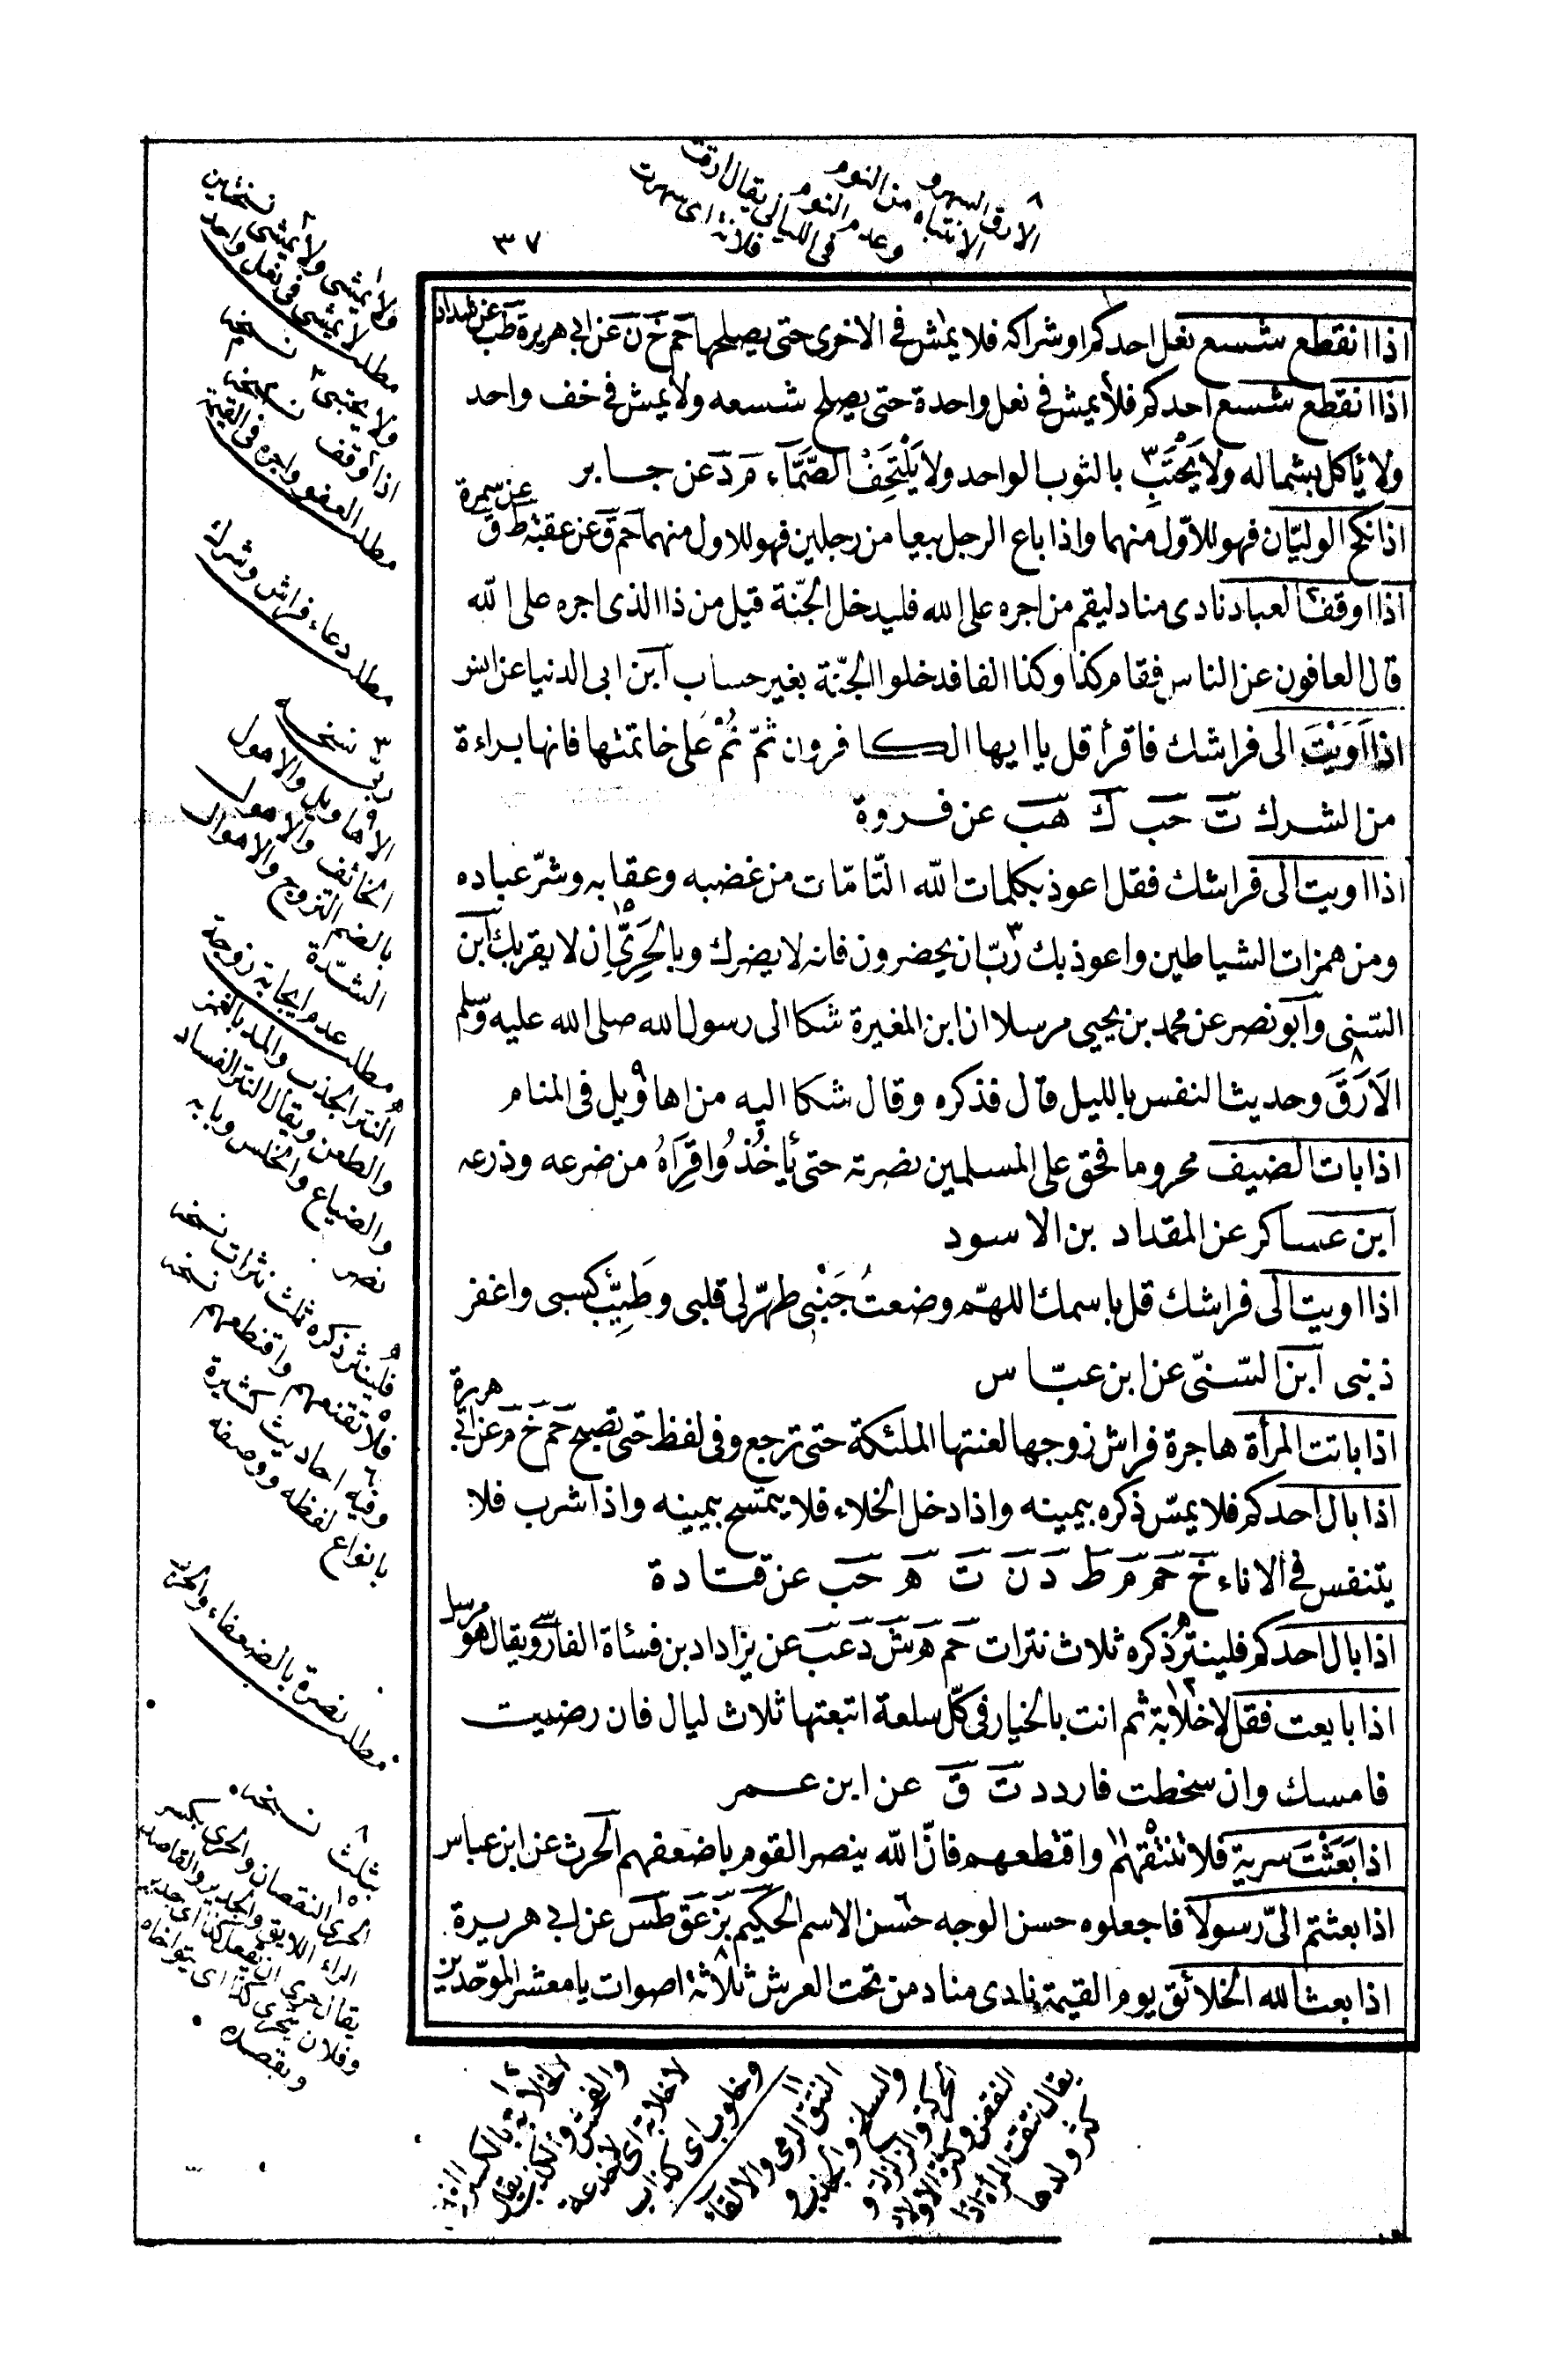 ٣٧
٨
الارق السهرو
الانتباه من النوم
وعدم النوم
فى الليالى يقال ارقت
فلانة اى سهرت
اذا انقطع شسع نعل احدكم او شراكه فلا يمش فى الاخرى حتى يصلحها حم خ ن عن ابى هريرة طب عن شداد
اذا انقطع شسع احدكم فلا يمش فى نعل واحدة حتى يصلح شسعه ولا يمش فى خف واحد
ولا ياكل بشماله ولا يَحْتَبِ بالثوب الواحد ولا يَلْتَحِفْ الصَّمَّاء م د عن جابر
اذا نكح الوليّان فهو للاوّل منهما واذا باع الرجل بيعا من رجلين فهو للاول منهما حم ق عن عقبة ط ق عن سمرة
اذا اوقف العباد نادى مناد ليقم من اجره على الله فليدخل الجنّة قيل من ذا الذى اجره على الله
قال العافون عن الناس فقام كذا وكذا الفا فدخلوا الجنّة بغير حساب ابن ابى الدنيا عن انس
اذا اَوَيْتَ الى فراشك فاقرأ قل يا ايها الكافرون ثمّ نُمْ على خاتمتها فانها براءة
من الشرك ت حب ك هب عن فروة
اذا اويت الى فراشك فقل اعوذ بكلمات الله التّامّات من غضبه وعقابه وشرّ عباده
ومن همزات الشياطين واعوذ بك ربّ ان يحضرون فانه لا يضرك وبالحَرِىِّ ان لا يقربك ابن
السّنى وابو نصر عن محمد بن يحيى مرسلا ان ابن المغيرة شكا الى رسول الله صلى الله عليه وسلم
الاَرَقَ وحديث النفس بالليل قال فذكره وقال شكا اليه من اهاويل فى المنام
اذا بات الضيف محروما فحق على المسلمين نصرته حتى ياخُذُوا قِرَاهُ من ضرعه وذرعه
ابن عساكر عن المقداد بن الاسود
اذا اويت الى فراشك قل باسمك اللهمّ وضعتُ جَنْبِى طهّر لى قلبى وطَيِّبْ كسبى واغفر
ذنبى ابن السّنّى عن ابن عبّاس
اذا باتت المرأة هاجرة فراش زوجها لعنتها الملئكة حتى ترجع وفى لفظ حتى تصبح حم خ م عن ابى هريرة
اذا بال احدكم فلا يمسّ ذكره بيمينه واذا دخل الخلاء فلا يتمسّح بيمينه واذا شرب فلا
يتنفس فى الاناء خ حم م ط د ن ت ه حب عن قتادة
اذا بال احدكم فلينتر ذكره ثلاث نترات حم ه ش د عب عن يزداد بن فسئاة الفارسى ويقال هو مرسل
اذا بايعت فقل لا خلابة ثم انت بالخيار فى كلّ سلعة ابتعتها ثلاث ليال فان رضيت
فامسك وان سخطت فاردد ت ق عن ابن عمر
اذا بَعَثْتَ سرية فلا تنتقهم واقتطعهم فانّ الله ينصر القوم باضعفهم الحرث عن ابن عباس
اذا بعثتم الىّ رسولا فاجعلوه حسن الوجه حسن الاسم الحكيم بز عق طس عن ابى هريرة
اذا بعث الله الخلائق يوم القيمة نادى مناد من تحت العرش ثلاثة اصوات يا معشر الموحّدين
ولا يمشى ولا يمشى نسختين
مطلب لا يمشى فى نعل واحد
ولا يحتبى نسخه
اذا وقف نسخه
مطلب العفو واجره فى القيمة
مطلب دعاء فراش وشرك
ربّى نسخه
الاهاويل والاهول
الخائف والاهول
بالضم التزوج والاهوال
الشدّة
مطلب عدم ايجابة زوجة
النتر الجذب والمد بالغمز
والطعن ويقال النتر الفساد
والضياع والخلس وبابه
نصر
فلينثر ذكره ثلث نثرات نسخه
فلا تقنعهم واقتطعهم نسخه
وفيه احاديث كثيرة
بانواع لفظه ووصفه
مطلب نصرة بالضعفاء
بثلث نسخه
الحرى النقصان والحرى بكسر
الراء اللايق والجدير والقاصد
يقال حرى ان يفعل كذا اى جدير
وفلان يتحرى كذا اى يتواخاه
ويقصده
الخلابة بالكسر
والغش والكذب يقال
لا خلابة اى لا خدعة
وخلوب اى كذاب
النتق الرمى والالقاء
والسلخ والجذب و
الحركة والزلزلة و
النفض وكثرة الاولاد
يقال نتقت المرأة اذا
كثر ولدها